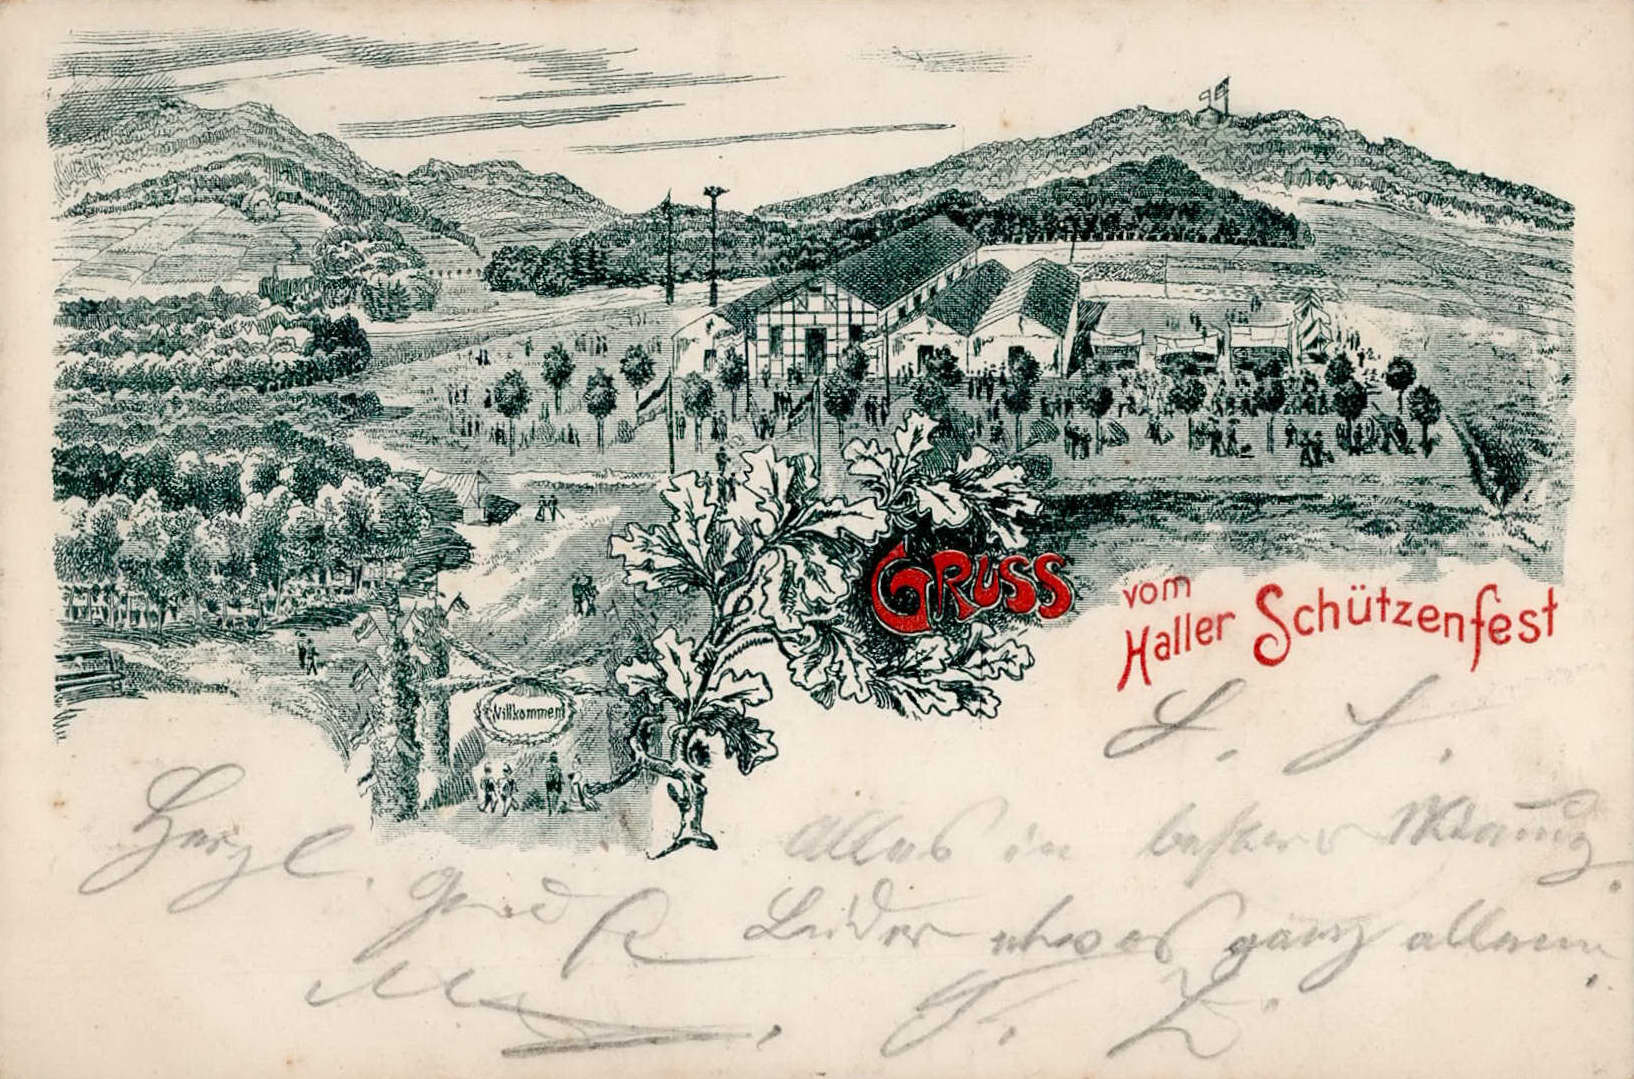 Willkommen!
GRUSS
vom
Haller Schützenfest
L. L.
Alles in bester
Herzl.
Leider etwas ganz allein.
F. L.